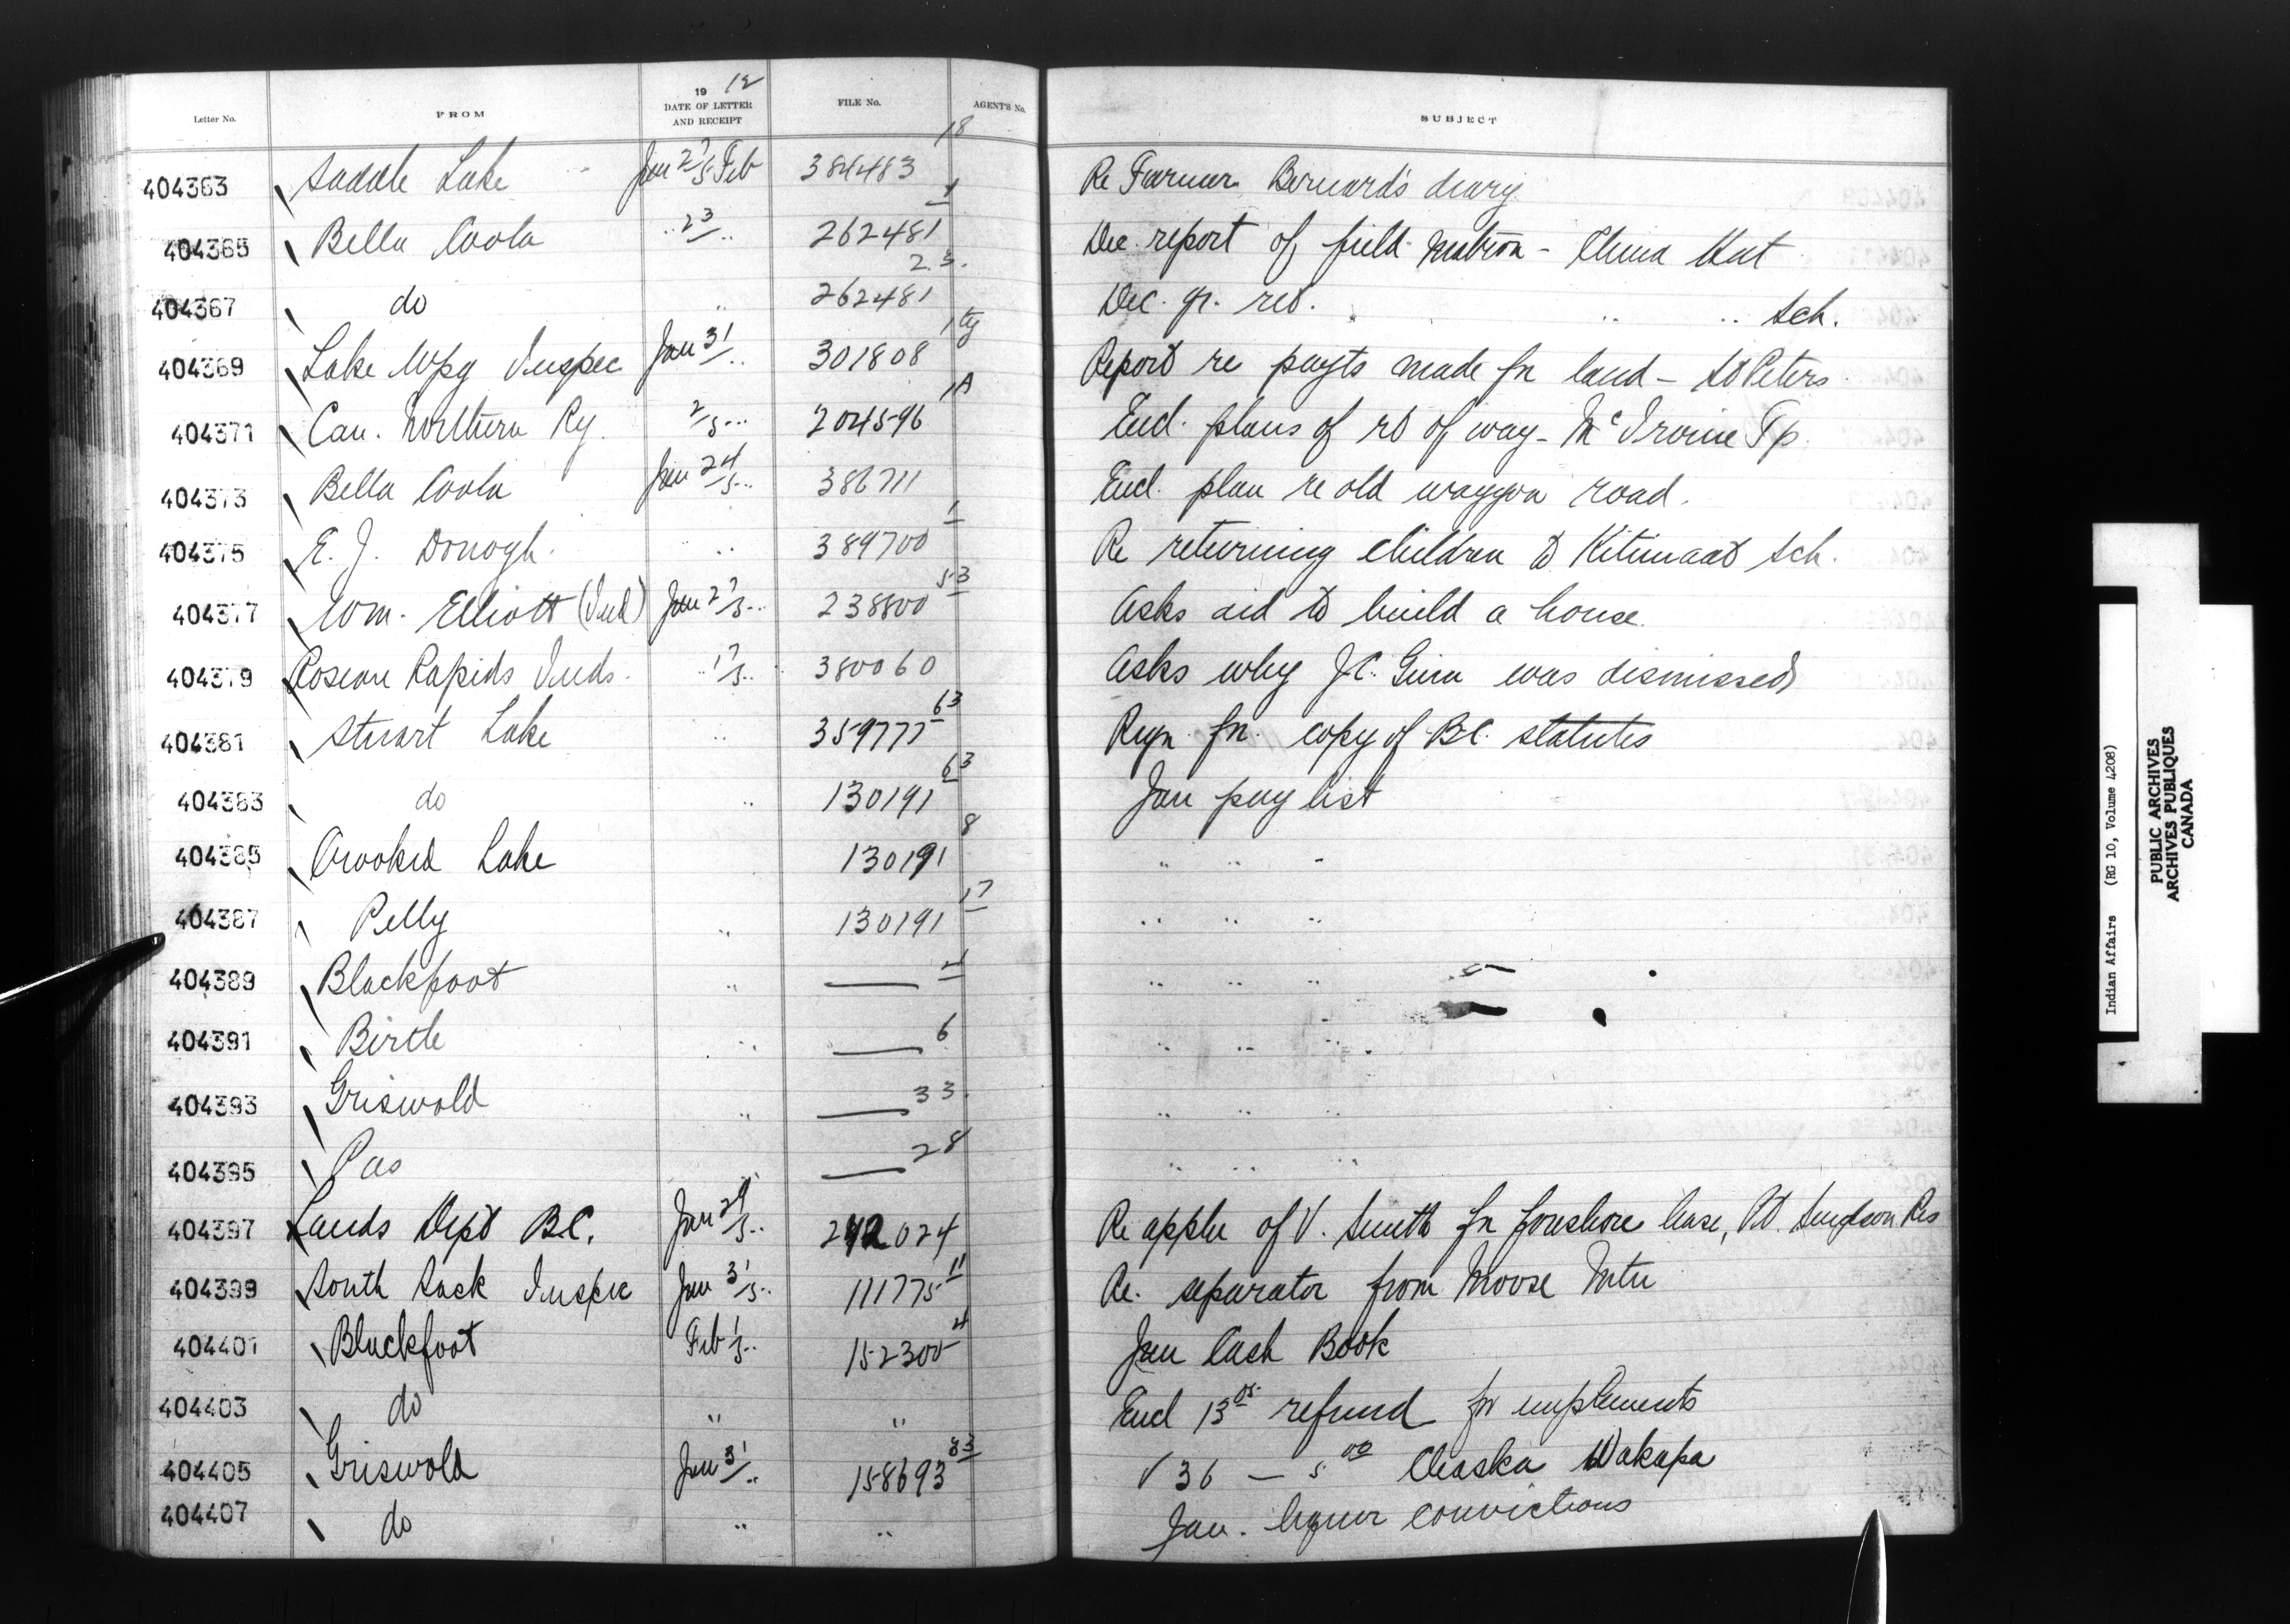 Letter No. FROM 1912 DATE OF LETTER AND RECEIPT FILE No. AGENT'S No. SUBJECT
404363 Saddle Lake Jan 27/5 Feb 384483 18 Re Farmer Bernard's diary
404365 Bella Coola .. 23/ .. 262481 1 Dec. report of field matron - China Hat
404367 do .. 262481 2.3. Dec. qr. ret. .. .. Sch.
404369 Lake Wpg Inspec Jan 31/ .. 301808 1 Re Report re payts made for land - St Peters
404371 Can. Northern Ry. 2/5 .. 204596 1A Encl. plans of rt of way - McIrvine Tp.
404373 Bella Coola Jan 24/5 .. 386711 Encl. plan re old waggon road.
404375 E. J. Donogh. .. .. 389700 1 Re returning children to Kitimaat Sch.
404377 Wm. Elliott (Ind) Jan 27/5 .. 238800 53 Asks aid to build a house.
404379 Roseau Rapids Inds. .. 17/5 .. 380060 Asks why J.C. Ginn was dismissed
404381 Stuart Lake .. 359777 63 Reqn. for copy of B.C. statutes
404383 do .. 130191 63 Jan pay list
404385 Crooked Lake 130191 8 .. .. ..
404387 Pelly .. 130191 17 .. .. ..
404389 Blackfoot .. — 4 .. .. ..
404391 Birtle .. — 6 .. .. ..
404393 Griswold .. — 33. .. .. ..
404395 Pas — 28 .. .. ..
404397 Lands Dept B.C. Jan 29/5 .. 242024 Re appln of V. Smith for foreshore lease, Pt. Simpson Res
404399 South Sask Inspec Jan 31/5 .. 111775 11 Re. separator from Moose Mtn
404401 Blackfoot Feb 1/5 .. 152300 4 Jan Cash Book
404403 do " " Encl 13.05 refund for implements
404405 Griswold Jan 31/ .. 158693 33 √ 36 — 5.00 Chaska Wakapa
404407 do " .. Jan. liquor convictions
Indian Affairs (RG 10, Volume 4208)
PUBLIC ARCHIVES
ARCHIVES PUBLIQUES
CANADA